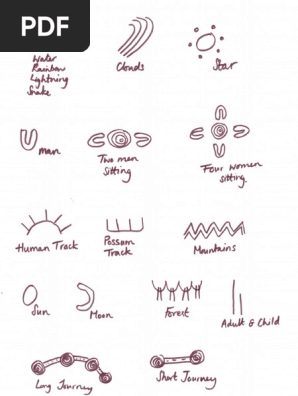 PDF
Water
Rainbow
Lightning
Snake
Clouds
Star
man
Two men
sitting
Four women
sitting.
Human Track
Possum
Track
Mountains
Sun
Moon
Forest
Adult & Child
Long Journey
Short Journey